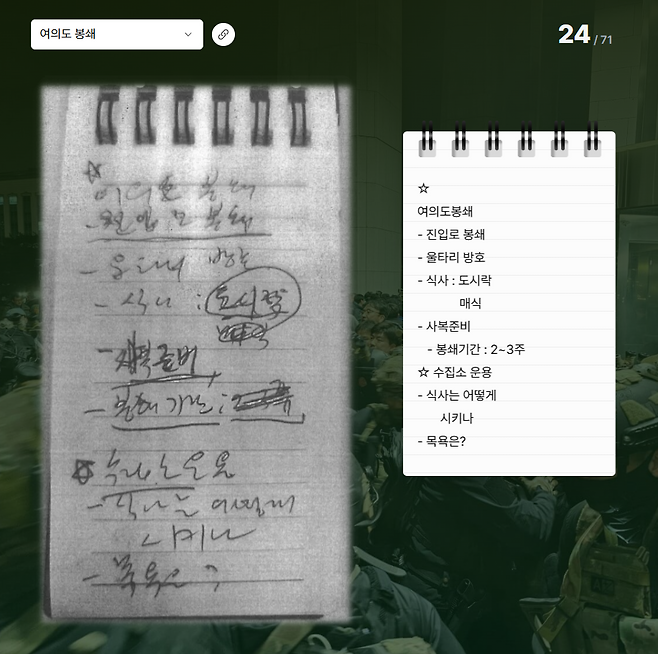 여의도 봉쇄
24 / 71
☆
여의도봉쇄
- 진입로 봉쇄
- 울타리 방호
- 식사 : 도시락
- 사복준비
- 봉쇄기간 :
☆ 수집소 운용
- 식사는 어떻게
시키나
- 목욕은?
☆
여의도봉쇄
- 진입로 봉쇄
- 울타리 방호
- 식사 : 도시락
매식
- 사복준비
- 봉쇄기간 : 2~3주
☆ 수집소 운용
- 식사는 어떻게
시키나
- 목욕은?